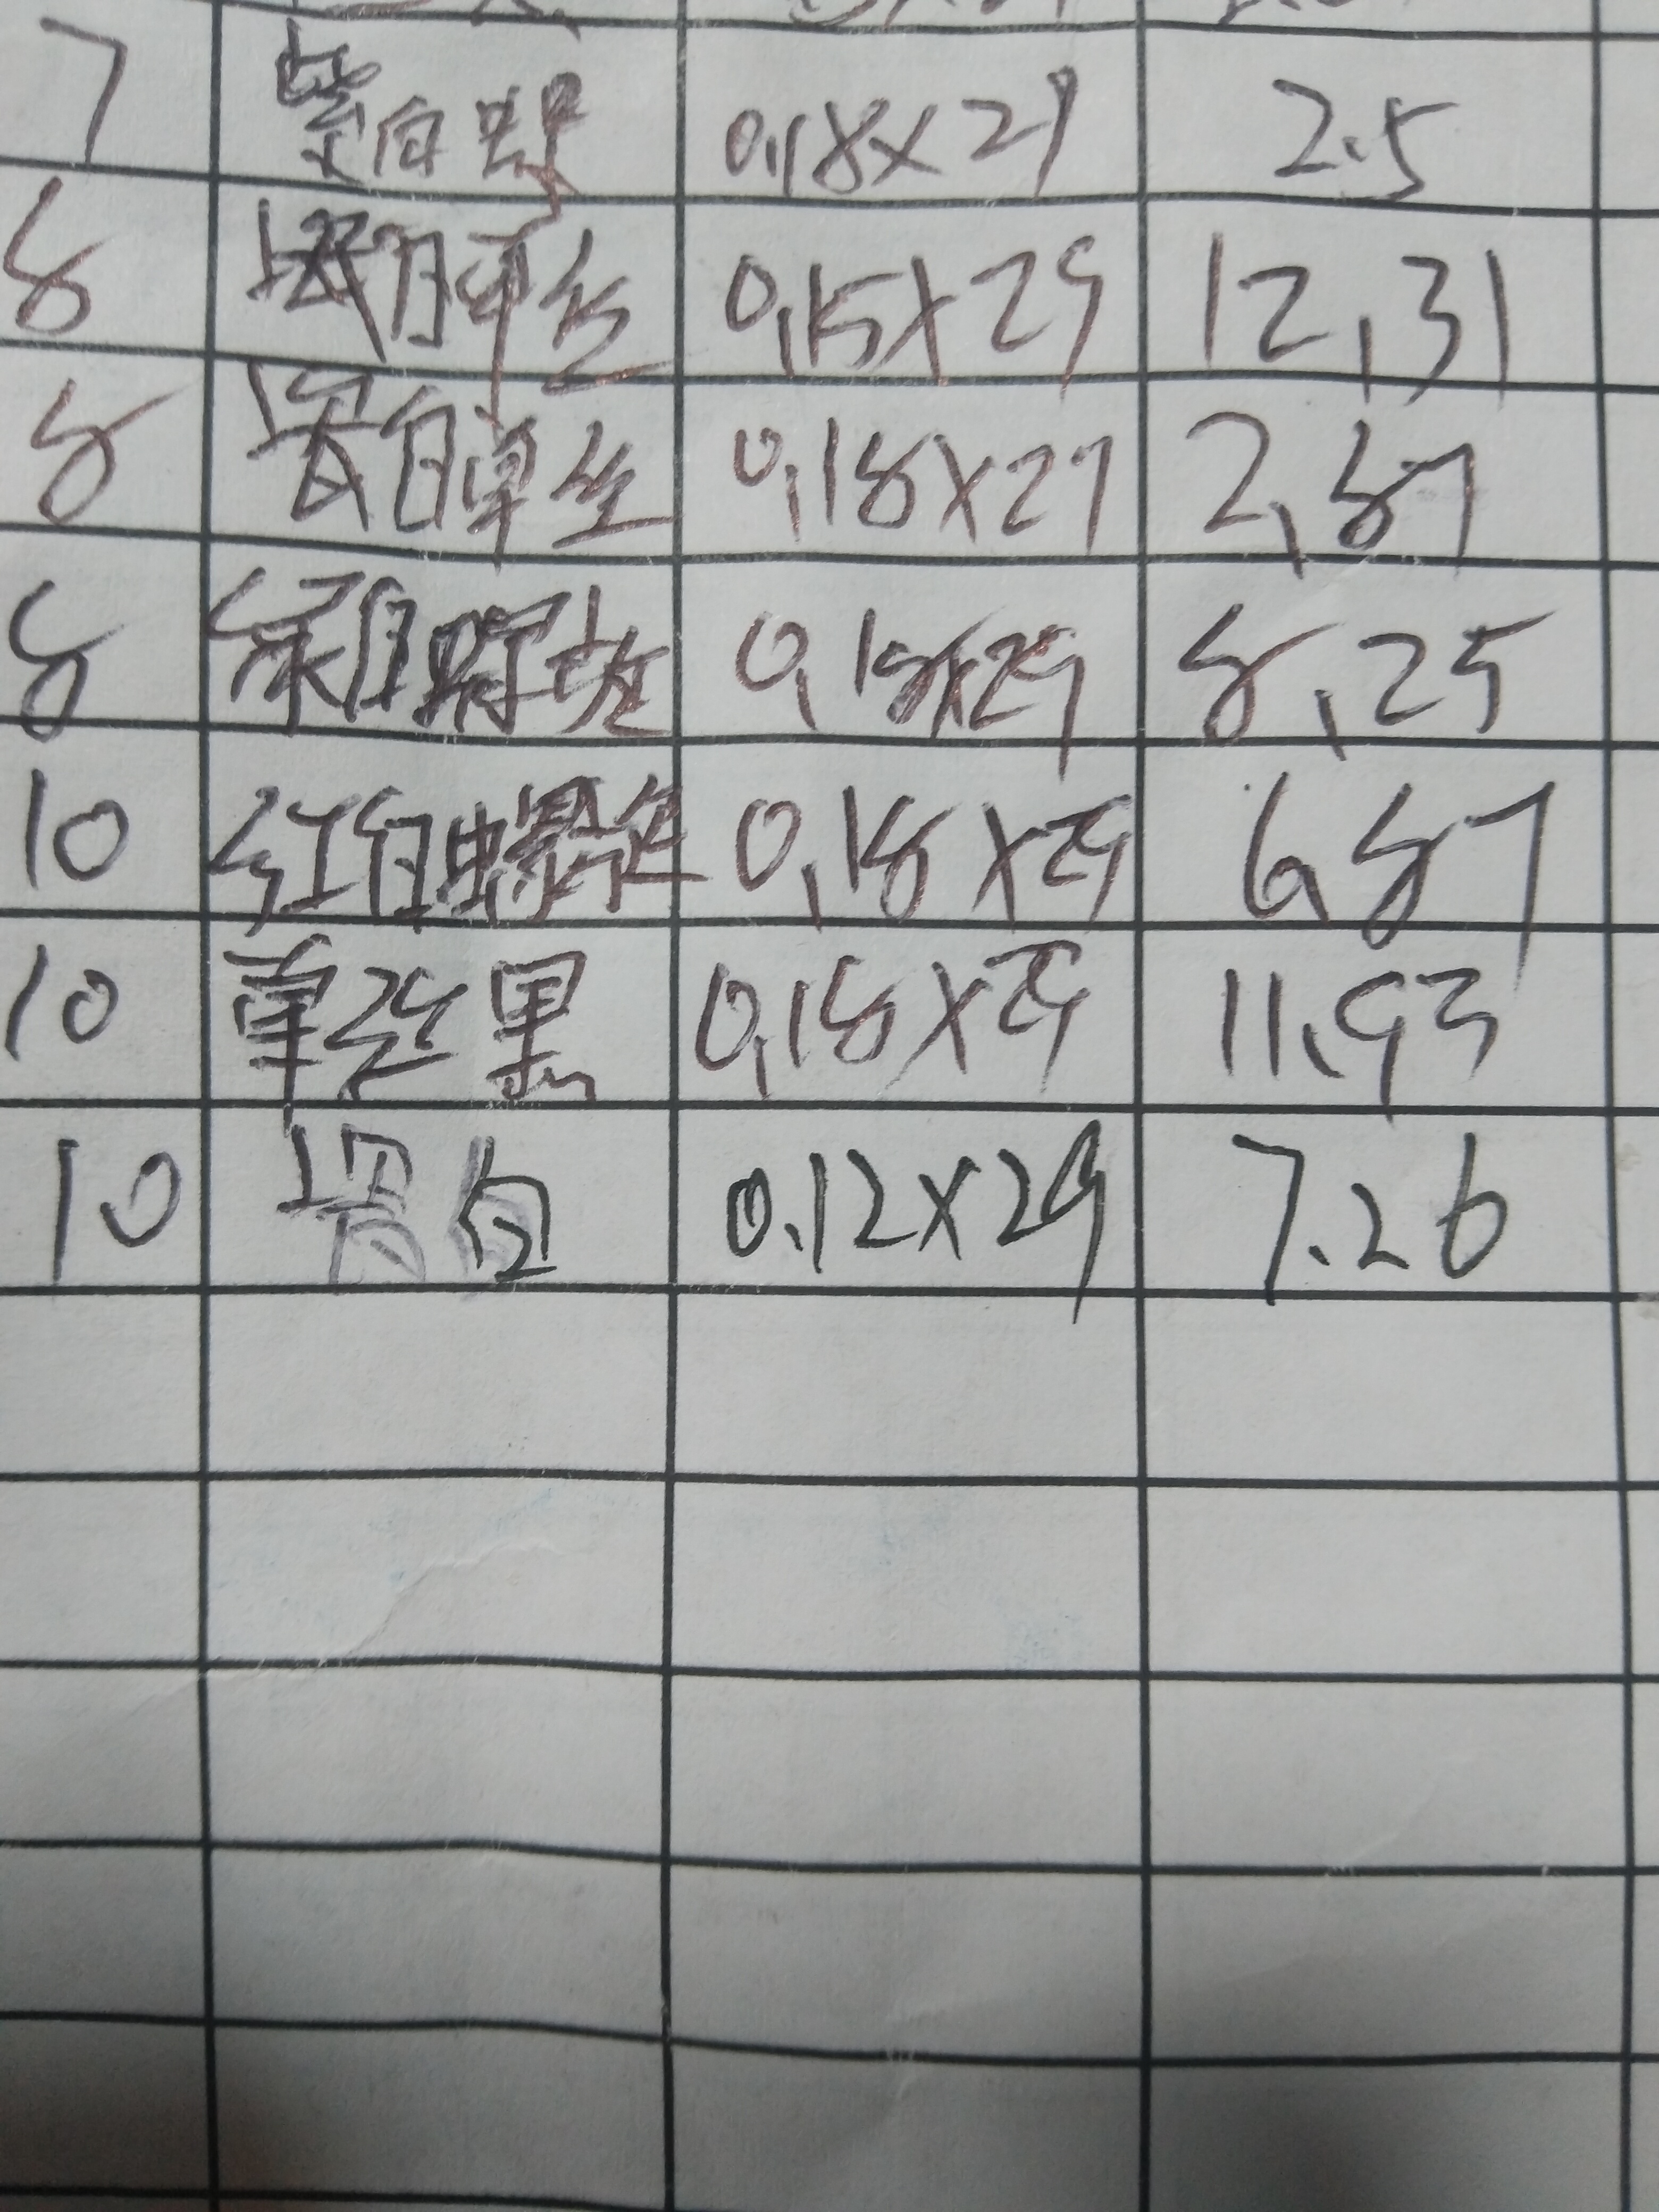 7 紫白 0.18×29 2.5
8 白单丝 0.15×29 12.31
8 白单丝 0.18×27 2.87
8 绿白 0.18×29 8.25
10 红白螺旋 0.18×29 6.87
10 单丝黑 0.18×29 11.93
10 白 0.12×29 7.26